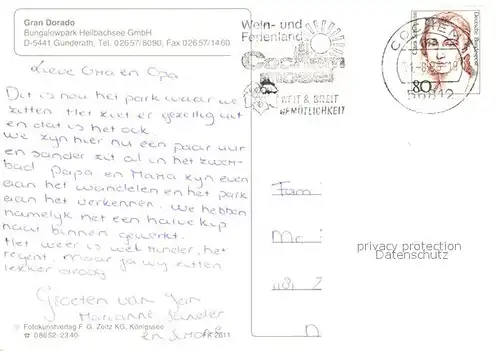 Gran Dorado
Bungalowpark Heilbachsee GmbH
D-5441 Gunderath, Tel. 02657/8090, Fax 02657/1460
Lieve Oma en Opa
Dit is nou het park waar we
zitten. Het ziet er gezellig uit
en dat is het ook.
We zijn hier nu een paar uur
en Sander zit al in het zwem-
bad Papa en Maria zyn even
aan het wandelen en het park
aan het verkennen. We hebben
namelyk net een halve kip
naar binnen gewerkt.
Het weer is wel minder, het
regent. Maar ja wy zitten
lekker droog
Groeten van Jan
Marianne Sander
en
Fotokunstverlag F. G. Zeitz KG, Königssee
08652-2340
FK 2611
Wein- und
Ferienland
Cochem
Mosel
WEIT & BREIT
GEMÜTLICHKEIT
COCHEM
56812
80
Deutsche Bundespost
Fam
privacy protection
Datenschutz